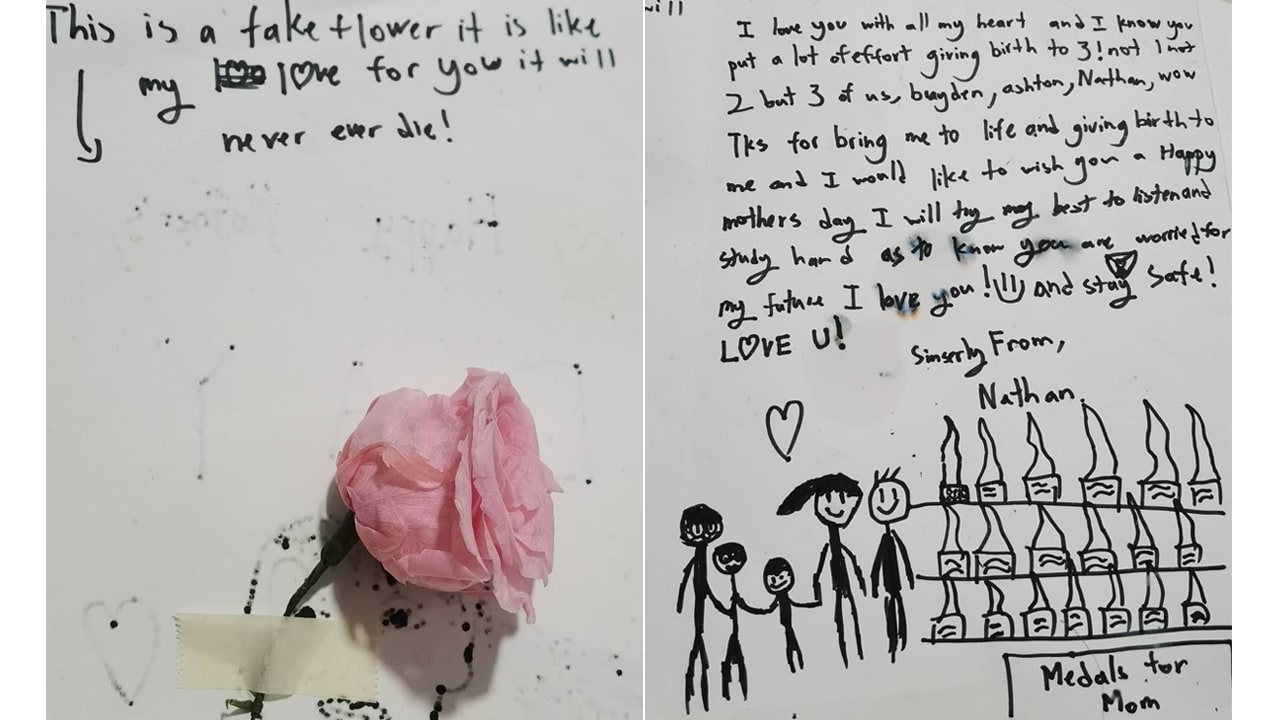 This is a fake flower it is like
my love for you it will
never ever die!
will
I love you with all my heart and I know you
put a lot of effort giving birth to 3! not 1 not
2 but 3 of us, brayden, ashton, Nathan, wow
Tks for bring me to life and giving birth to
me and I would like to wish you a Happy
mothers day I will try my best to listen and
study hard as to know you are worried for
my future I love you! and stay safe!
LOVE U!
Sinserly From,
Nathan.
Medals for
Mom